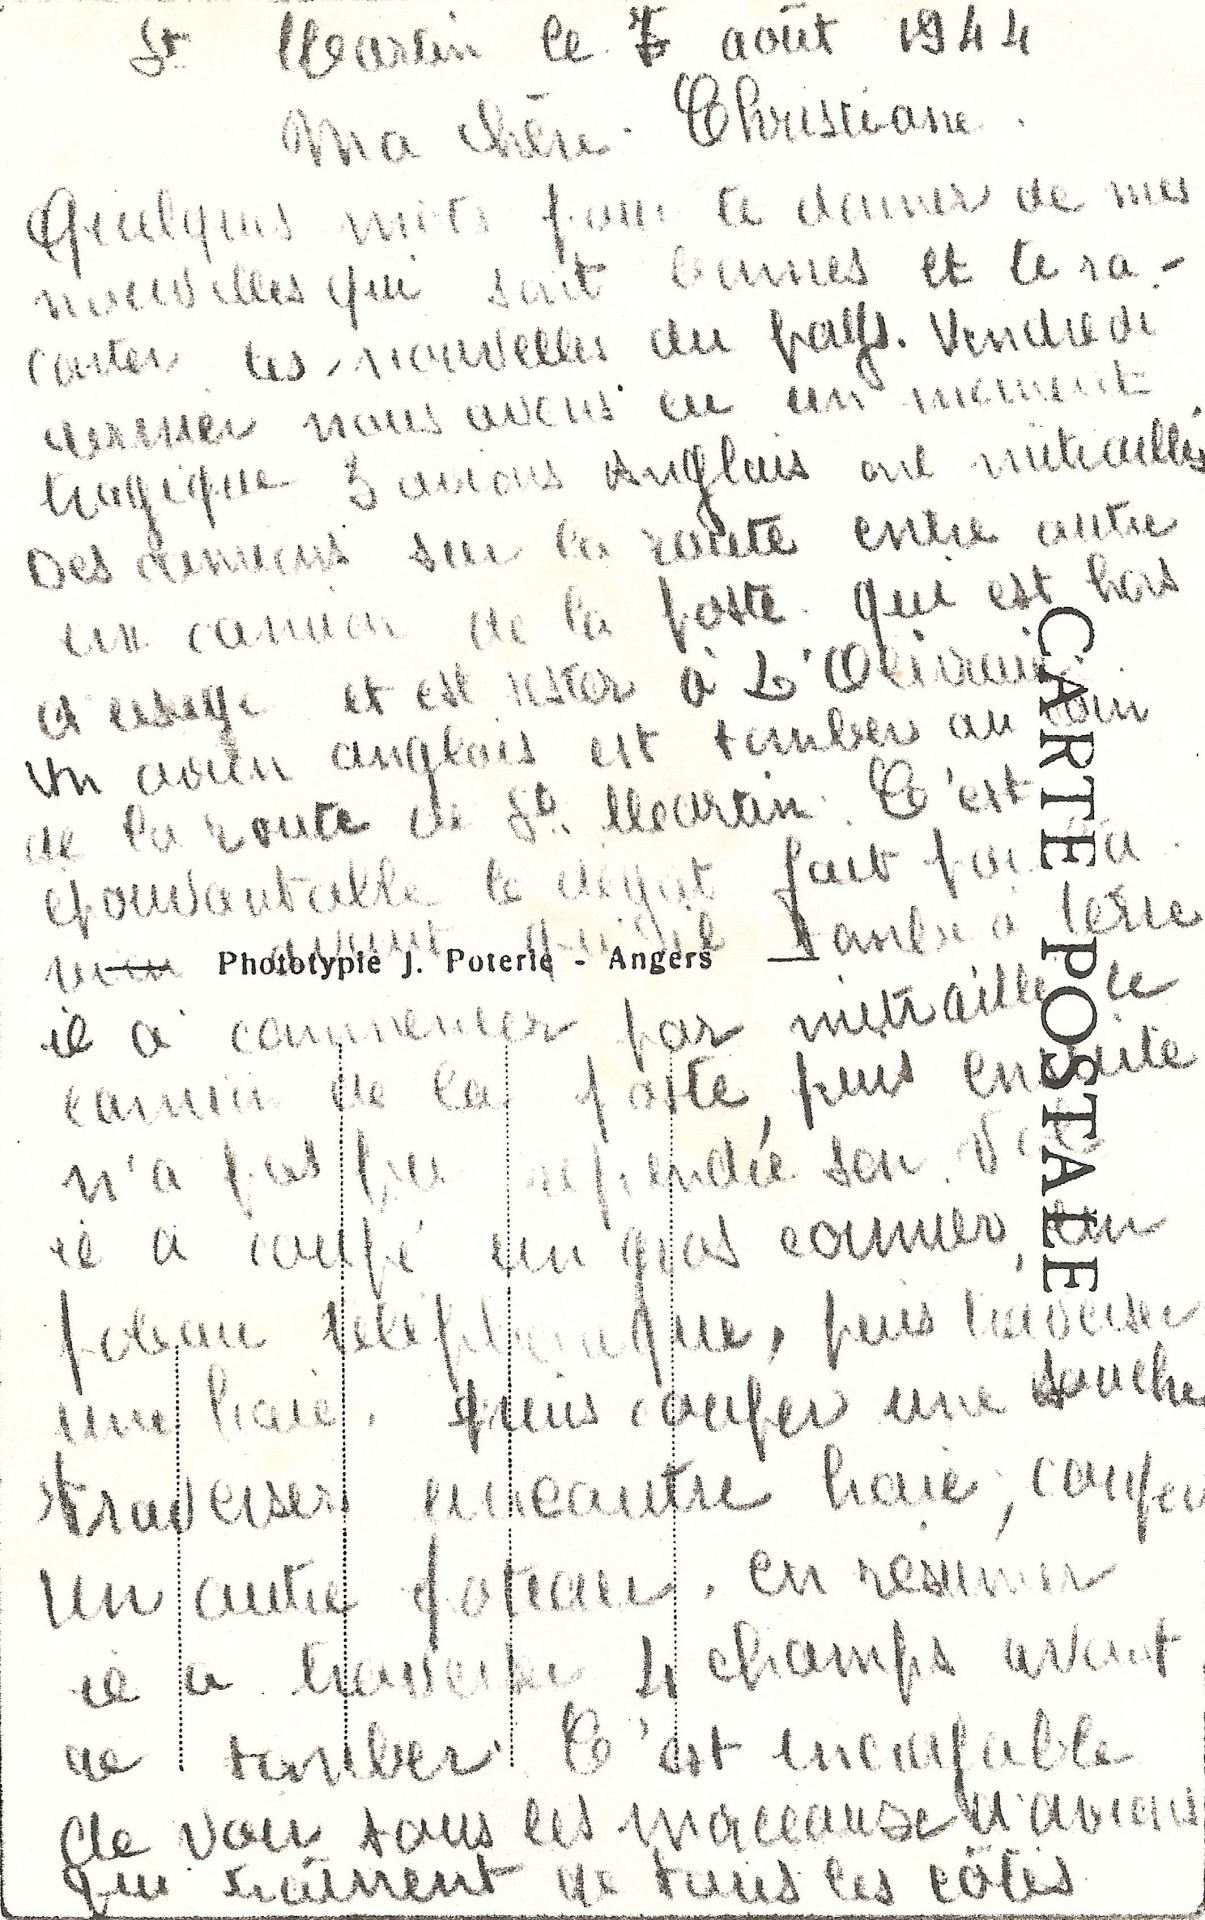 St Martin le 7 août 1944
Ma chère Christiane.
Quelques mots pour te donner de mes
nouvelles qui sont bonnes et te ra-
conter les nouvelles du pays. Vendredi
dernier nous avons eu un moment
tragique 3 avions Anglais ont mitraillés
Des camions sur la route entre autre
un camion de la poste. qui est hors
d'usage et est rester à L'Olivraie
Un avion anglais est tomber au
de la route de St. Martin. C'est
épouvantable le dégat fait par
avant qu'il tombe à terre
Phototypie J. Poterie - Angers
il a commencer par mitraille le
camion de la poste, puis ensuite
n'a pas pu reprendre son vol
il a coupé un gros cormier, un
poteau téléphonique, puis traverser
une haie, puis couper une souche
traverser encautre haie, couper
un autre poteau. en résumer
il a traverser 4 champs avant
de tomber. C'est incroyable
de voir tous les morceaux d'avions
qui traînent de tous les côtés
CARTE POSTALE